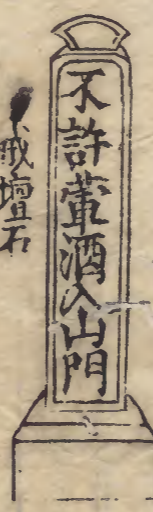 不許葷酒入山門
戒壇石